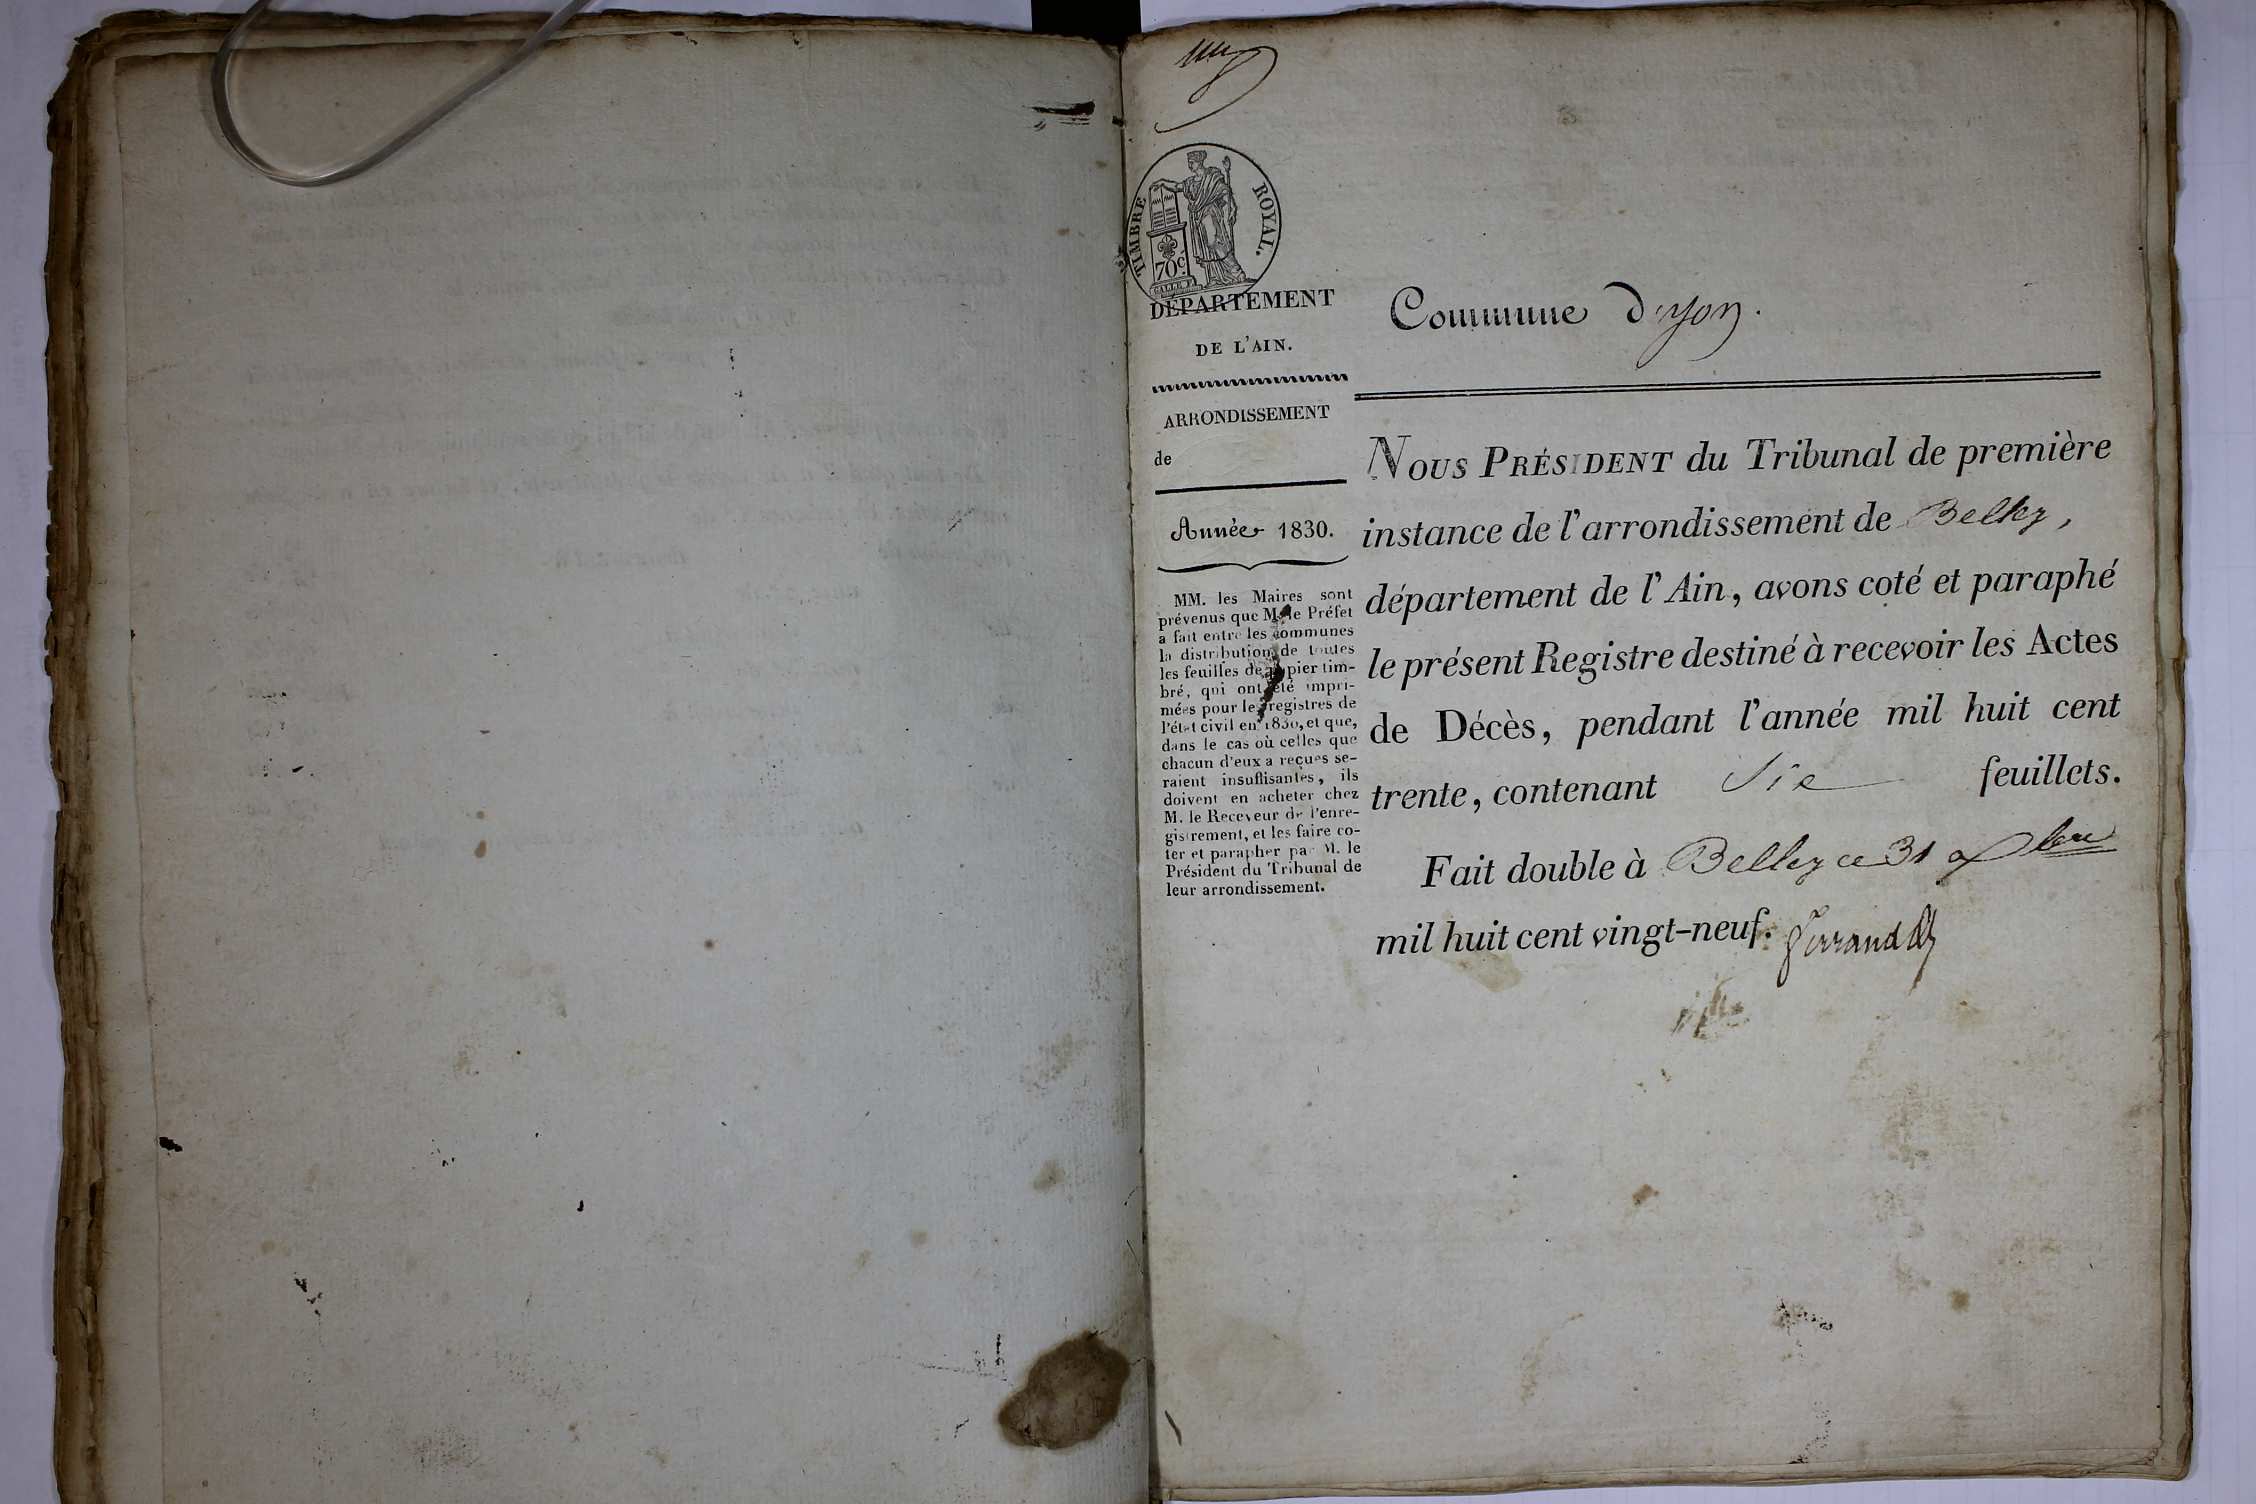 TIMBRE ROYAL.
70c
DÉPARTEMENT
DE L'AIN.
ARRONDISSEMENT
de
Année 1830.
MM. les Maires sont
prévenus que M. le Préfet
a fait entre les communes
la distribution de toutes
les feuilles de papier tim-
bré, qui ont été impri-
mées pour les registres de
l'état civil en 1830, et que,
dans le cas où celles que
chacun d'eux a reçues se-
raient insuffisantes, ils
doivent en acheter chez
M. le Receveur de l'enre-
gistrement, et les faire co-
ter et parapher par M. le
Président du Tribunal de
leur arrondissement.
Commune d'yon.
NOUS PRÉSIDENT du Tribunal de première
instance de l'arrondissement de Belley,
département de l'Ain, avons coté et paraphé
le présent Registre destiné à recevoir les Actes
de Décès, pendant l'année mil huit cent
trente, contenant Six feuillets.
Fait double à Belley ce 31 Xbre
mil huit cent vingt-neuf.